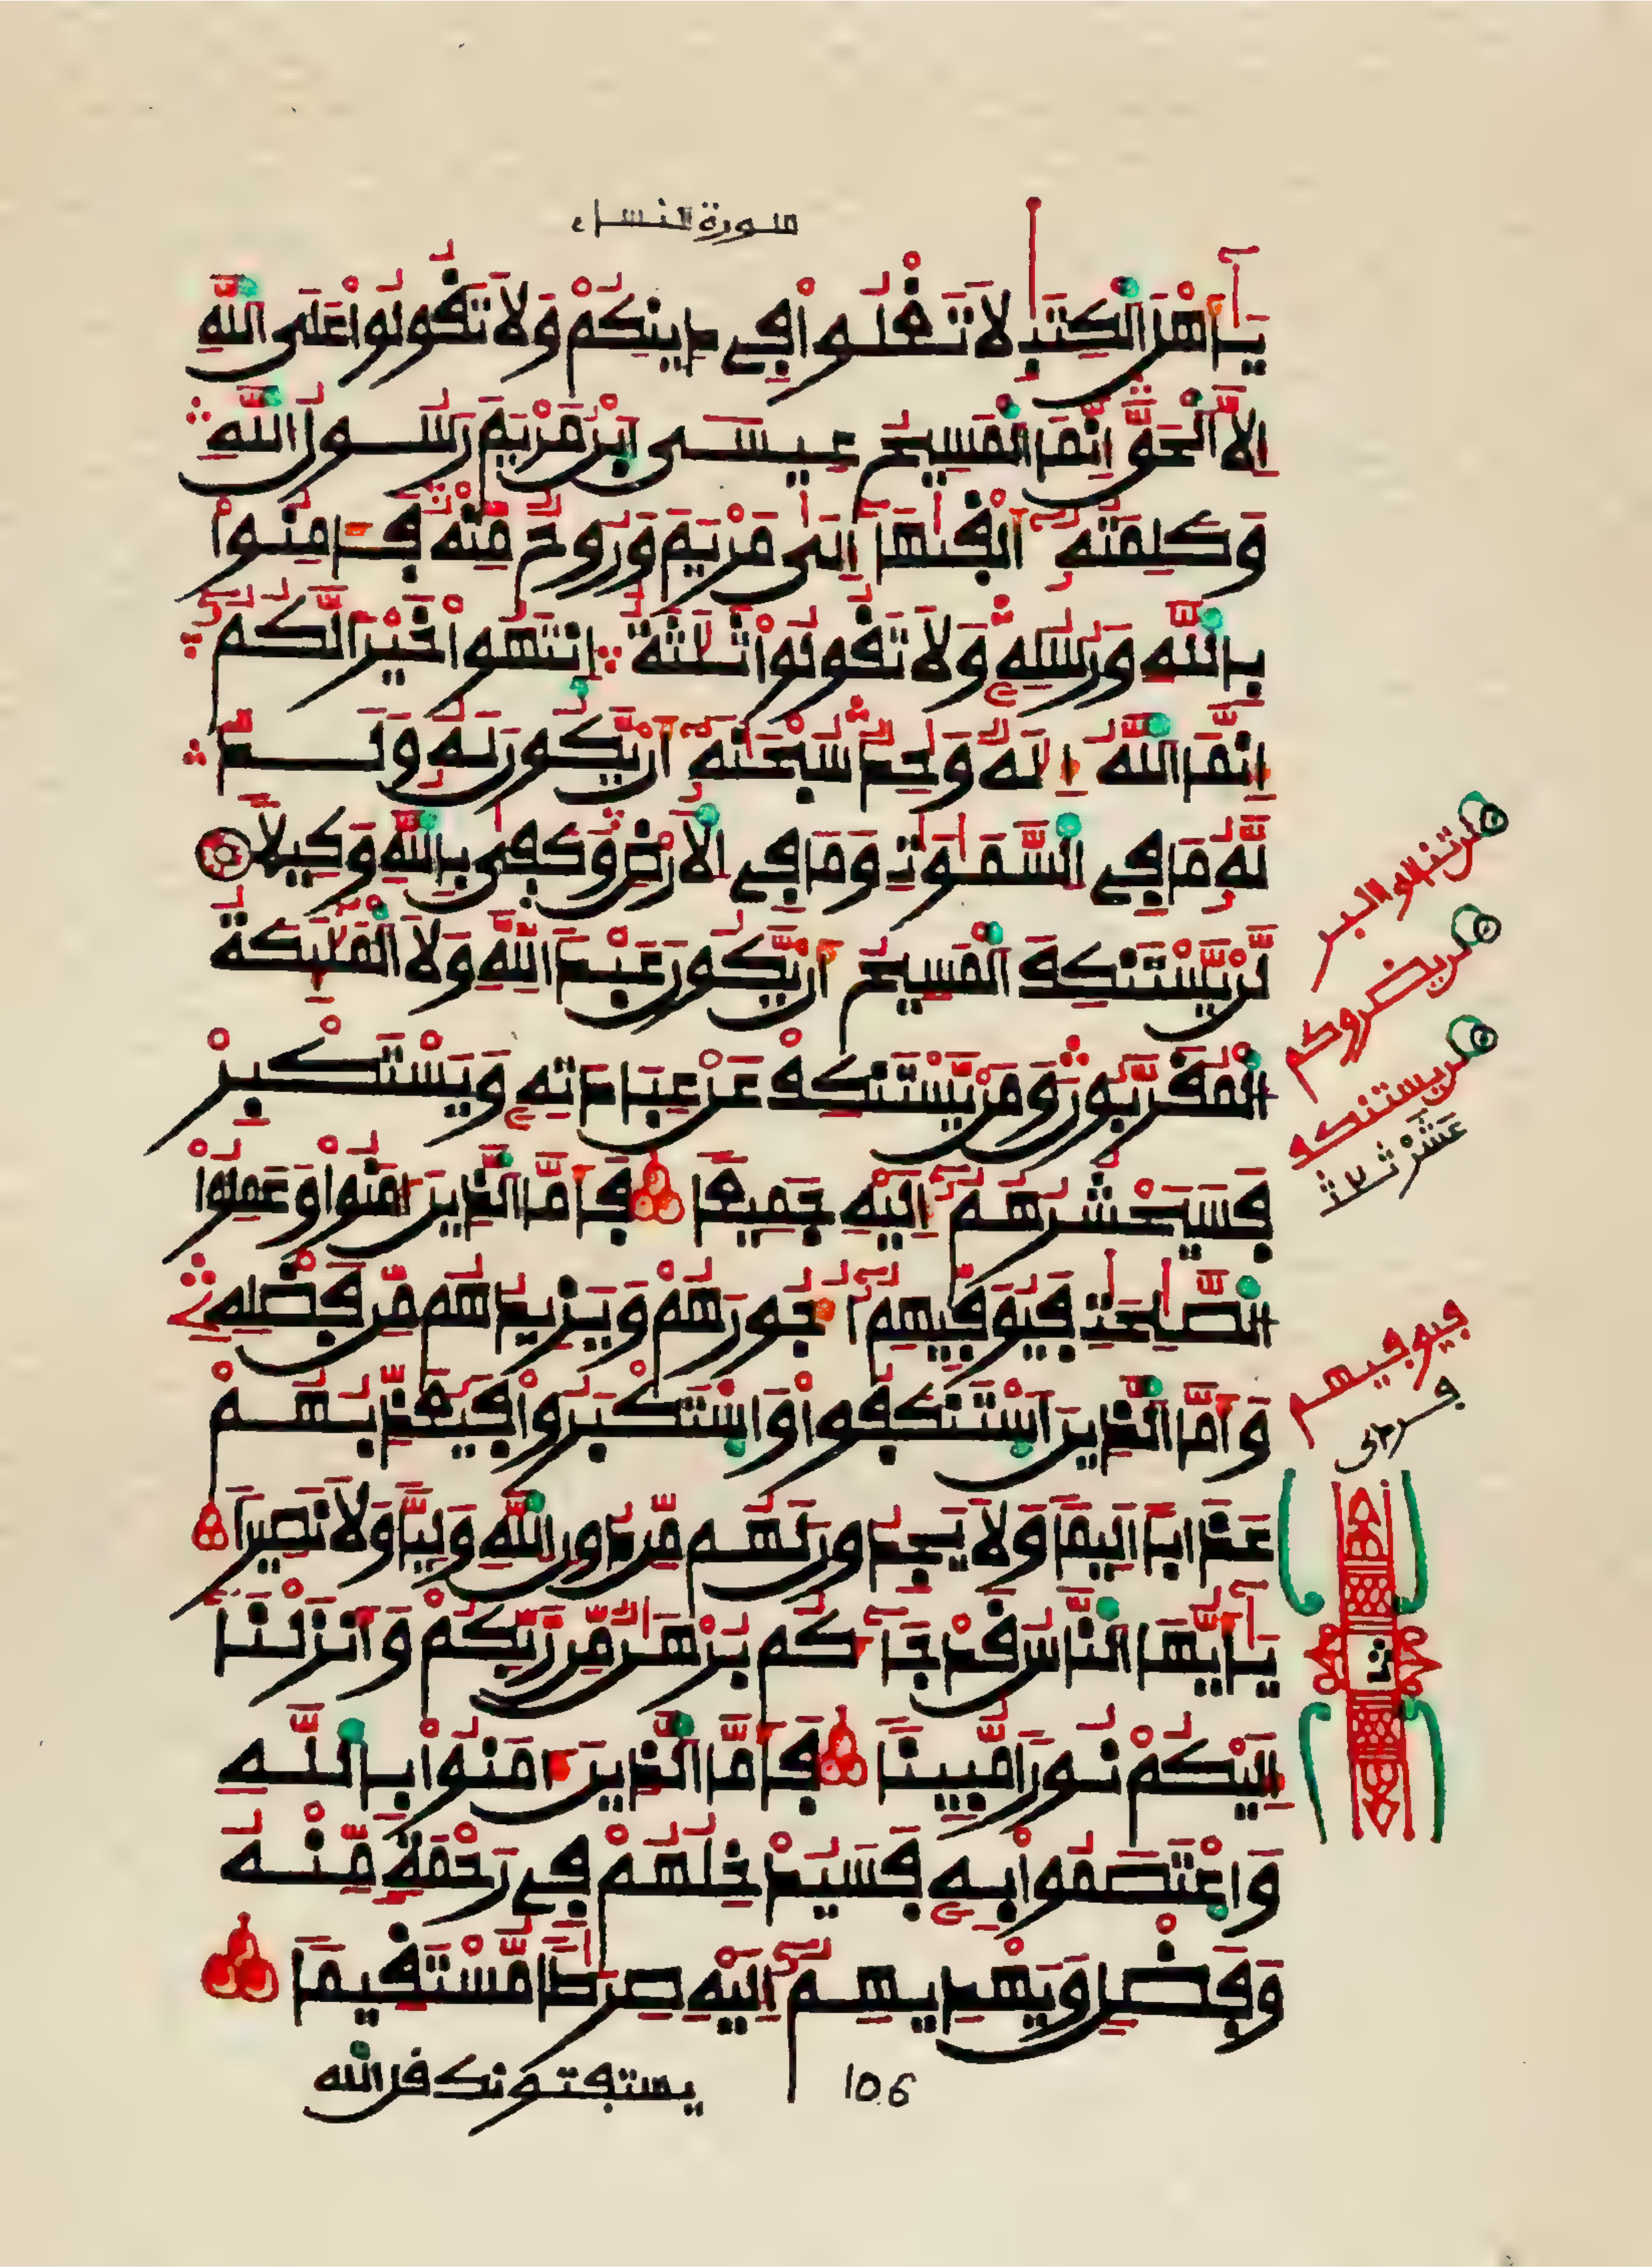 سورة النساء
يَٰأَهْلَ اَلْكِتَٰبِ لَا تَغْلُواْ فِے دِينِكُمْ وَلَا تَقُولُواْ عَلَى اَللَّهِ
إِلَّا اَلْحَقَّ إِنَّمَا اَلْمَسِيحُ عِيسَى اَبْنُ مَرْيَمَ رَسُولُ اُللَّهِ
وَكَلِمَتُهُۥ أَلْقَىٰهَا إِلَىٰ مَرْيَمَ وَرُوحٌ مِّنْهُ فَـَٔامِنُواْ
بِاللَّهِ وَرُسُلِهِۦ وَلَا تَقُولُواْ ثَلَٰثَةٌ اِنتَهُواْ خَيْراً لَّكُمُۥ
إِنَّمَا اَللَّهُ إِلَٰهٌ وَٰحِدٌ سُبْحَٰنَهُۥ أَنْ يَّكُونَ لَهُۥ وَلَدٌ
لَّهُۥ مَا فِے اِلسَّمَٰوَٰتِ وَمَا فِے اِلْأَرْضِ وَكَفَىٰ بِاللَّهِ وَكِيلاً
لَّنْ يَّسْتَنكِفَ اَلْمَسِيحُ أَنْ يَّكُونَ عَبْداً لِّلهِ وَلَا اَلْمَلَٰٓئِكَةُ
اُلْمُقَرَّبُونَ وَمَنْ يَّسْتَنكِفْ عَنْ عِبَادَتِهِۦ وَيَسْتَكْبِرْ
فَسَيَحْشُرُهُمُۥ إِلَيْهِ جَمِيعاً فَأَمَّا اَلذِينَ ءَامَنُواْ وَعَمِلُواْ
اُلصَّٰلِحَٰتِ فَيُوَفِّيهِمُۥ أُجُورَهُمْ وَيَزِيدُهُم مِّن فَضْلِهِۦ
وَأَمَّا اَلذِينَ اَسْتَنكَفُواْ وَاسْتَكْبَرُواْ فَيُعَذِّبُهُمْ
عَذَاباً أَلِيماً وَلَا يَجِدُونَ لَهُم مِّن دُونِ اِللَّهِ وَلِيّاً وَلَا نَصِيراً
يَٰأَيُّهَا اَلنَّاسُ قَدْ جَآءَكُم بُرْهَٰنٌ مِّن رَّبِّكُمْ وَأَنزَلْنَا
إِلَيْكُمْ نُوراً مُّبِيناً فَأَمَّا اَلذِينَ ءَامَنُواْ بِاللَّهِ
وَاعْتَصَمُواْ بِهِۦ فَسَيُدْخِلُهُمْ فِے رَحْمَةٍ مِّنْهُ
وَفَضْلٍ وَيَهْدِيهِمُۥ إِلَيْهِ صِرَٰطاً مُّسْتَقِيماً
يستفتونك قل الله
106
لن تنالوا البر
لن يضروكم
لن يستنكف
فيوفيهم
ث